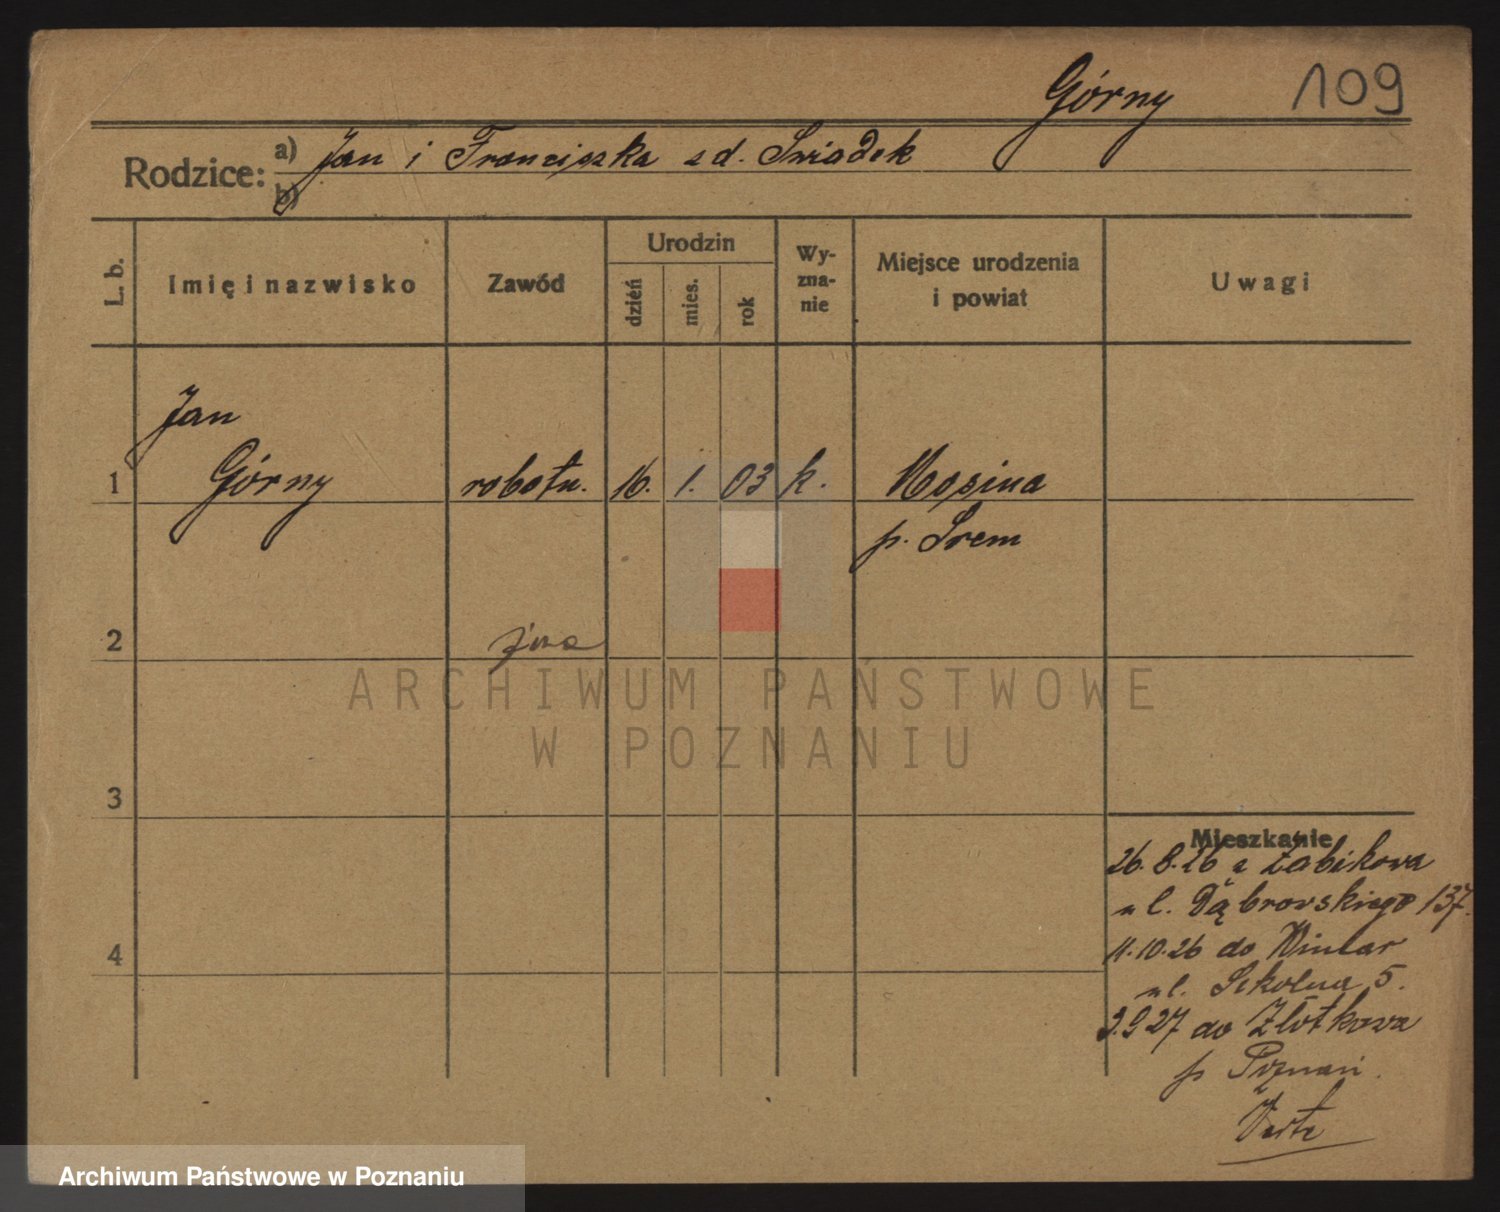 Górny 109
Rodzice: a) Jan i Franciszka zd. Swiadek
b)
L. b. Imię i nazwisko Zawód Urodzin dzień mies. rok Wyznanie Miejsce urodzenia i powiat Uwagi
Jan
1 Górny robotn. 16. 1. 03 k. Mosina
p. Srem
2
ARCHIWUM PAŃSTWOWE
W POZNANIU
3
Mieszkanie
26.8.26 z Żabikowa
ul. Dąbrowskiego 137.
11.10.26 do Winiar
4
ul. Szkolna 5.
3.9 27 do Złotkowa
p Poznań.
Verte
Archiwum Państwowe w Poznaniu